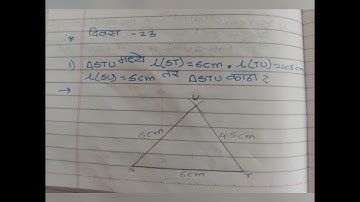 * दिवस -23
1) ΔSTU मध्ये l(ST)=6cm, l(TU)=45cm
l(SU)=5cm तर ΔSTU काढा?
→
U
6cm
45cm
S
6cm
T